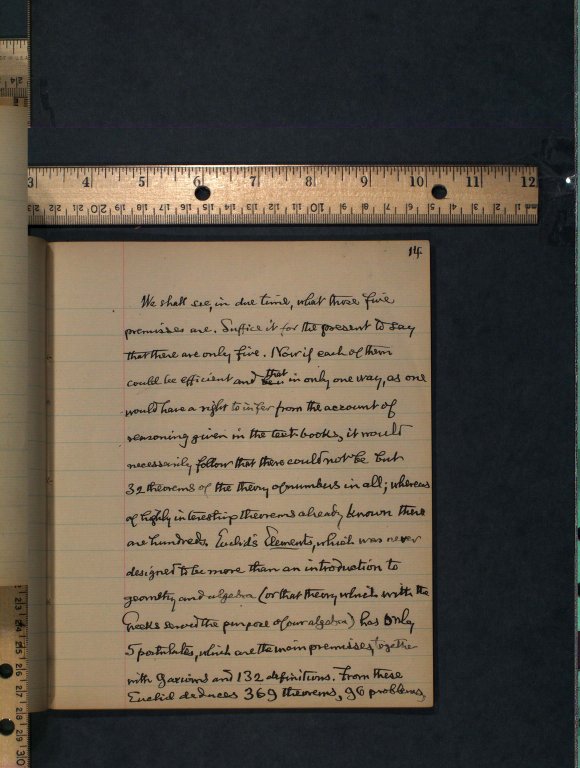 14
We shall see, in due time, what those five
premisses are. Suffice it for the present to say
that there are only five. Now if each of them
could be efficient and that in only one way, as one
would have a right to infer from the account of
reasoning given in the text books, it would
necessarily follow that there could not be but
32 theorems of the theory of numbers in all; whereas
of highly interesting theorems already known there
are hundreds. Euclid's Elements, which was never
designed to be more than an introduction to
geometry and algebra (or that theory which with the
Greeks served the purpose of our algebra) has only
5 postulates, which are the main premisses, together
with 9 axioms and 132 definitions. From these
Euclid deduces 369 theorems, 96 problems,